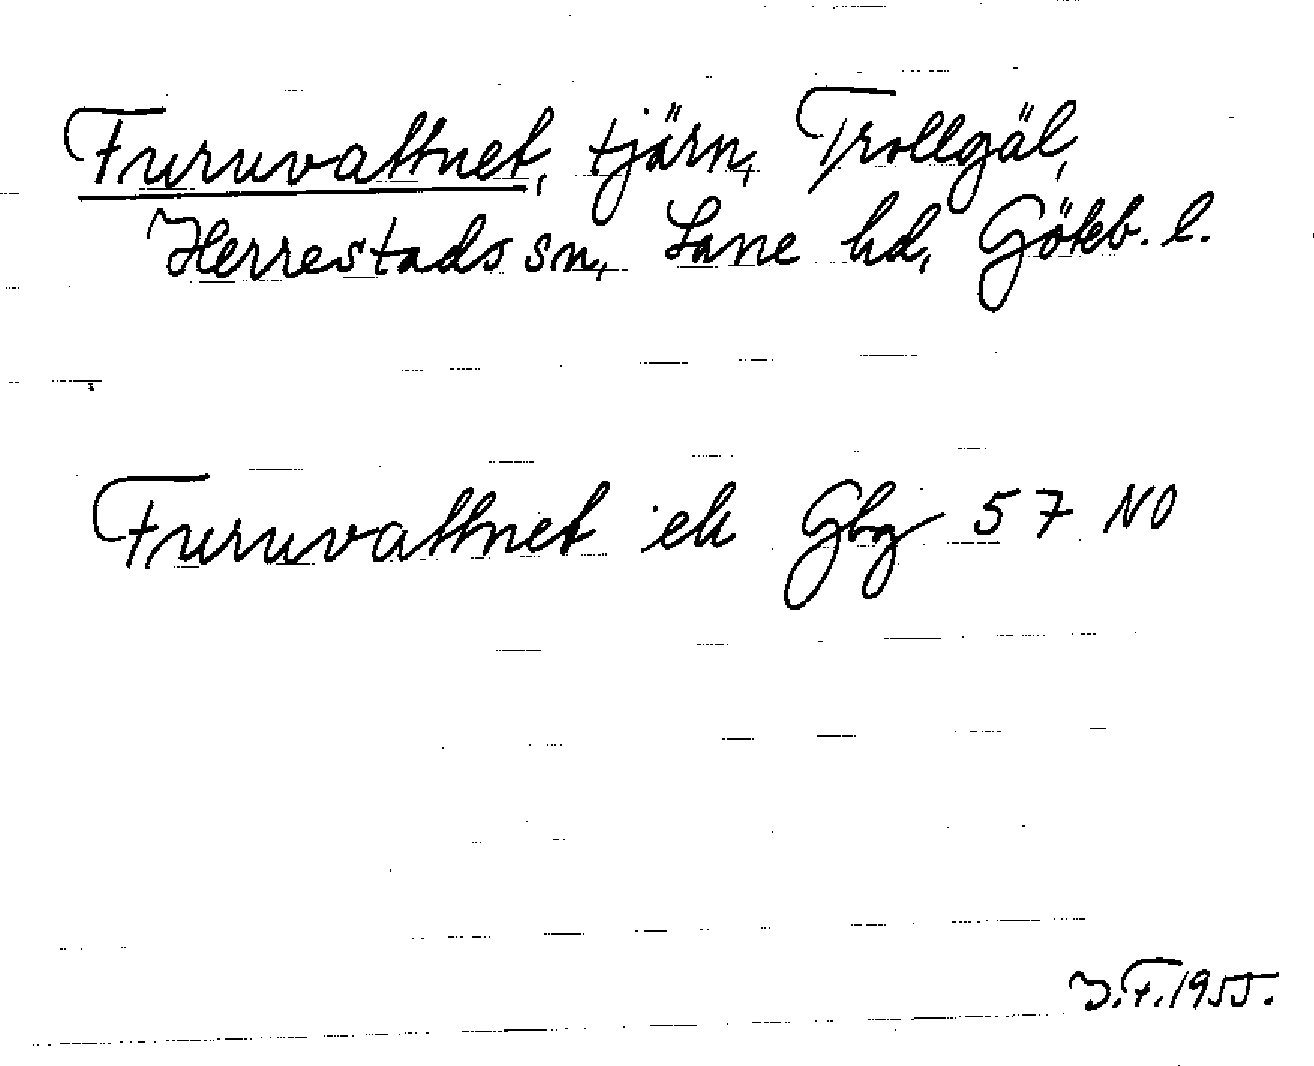 Furuvattnet, tjärn, Trollgäl,
Herrestads sn, Lane hd, Göteb. l.
Furuvattnet ek Gbg 57 NO
J.F. 1955.